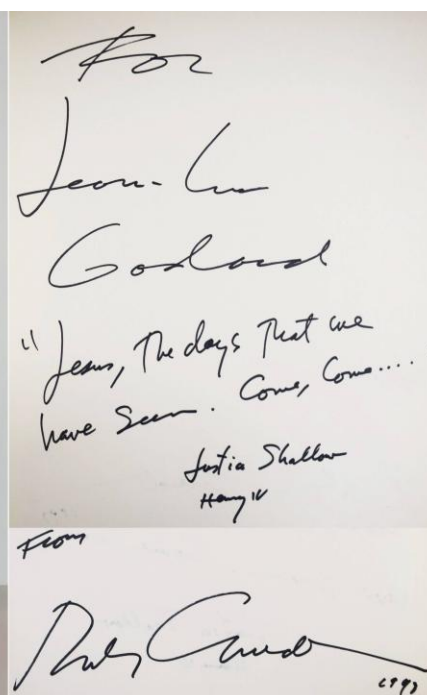 For
Jean-Luc
Godard
"Jesus, the days that we
have seen. Come, Come....
Justice Shallow
Henry IV
From